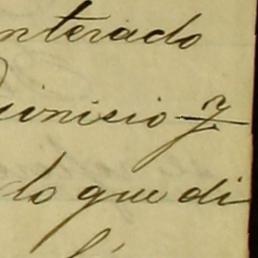 nterado
ionisio J
lo que di